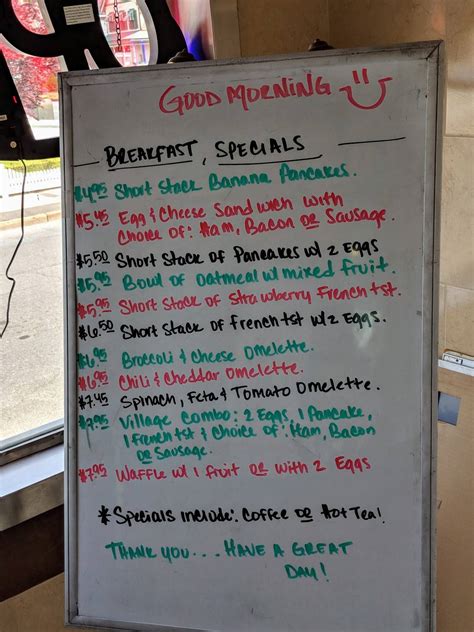 GOOD MORNING
BREAKFAST, SPECIALS
$4.95 Short Stack Banana Pancakes.
$5.45 Egg & Cheese Sandwich with
choice of: Ham, Bacon or Sausage.
$5.50 Short Stack of Pancakes w/ 2 Eggs
$5.95 Bowl of oatmeal w/ mixed fruit.
$5.95 Short Stack of Strawberry French tst.
$6.50 Short Stack of french tst w/ 2 Eggs.
$6.95 Broccoli & Cheese Omelette.
$6.95 Chili & Cheddar Omelette.
$7.45 Spinach, Feta & Tomato Omelette.
Village Combo: 2 Eggs, 1 Pancake,
1 french tst & choice of: Ham, Bacon
or Sausage.
$7.95 Waffle w/ 1 fruit or with 2 Eggs
*Specials Include: Coffee or Hot Tea!
THANK YOU... HAVE A GREAT
DAY!